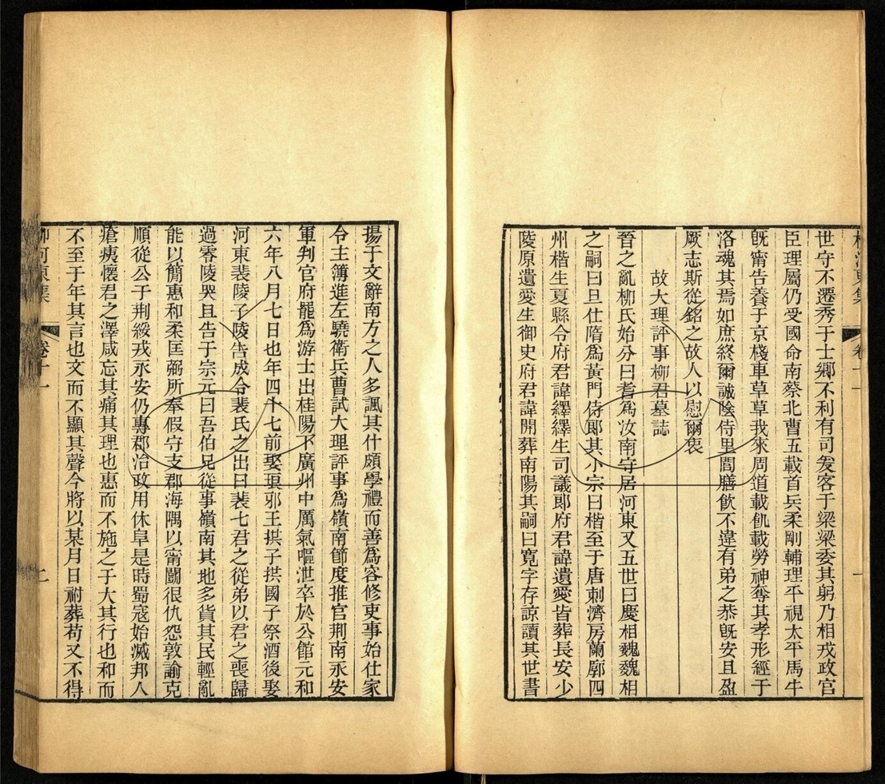 世守不遷秀于士鄉不利有司爰客于梁梁委其躬乃相戎政官
臣理屬仍受國命南蔡北曹五載首兵柔剛輔理平視太平馬牛
旣甯告養于京棧車草草我來周道載飢載勞神奪其孝形經于
洛魂其焉如庶終爾誠陰侍里閭膳飲不違有弟之恭旣安且盈
厥志斯從銘之故人以慰爾衷
故大理評事柳君墓誌
晉之亂柳氏始分曰耆爲汝南守居河東又五世曰慶相魏魏相
之嗣曰旦仕隋爲黃門侍郞其小宗曰楷至于唐刺濟房蘭廓四
州楷生夏縣令府君諱繹繹生司議郞府君諱遺愛皆葬長安少
陵原遺愛生御史府君諱開葬南陽其嗣曰寬字存諒讀其世書
揚于文辭南方之人多諷其什頗學禮而善爲容修吏事始仕家
令主簿進左驍衛兵曹試大理評事爲嶺南節度推官荆南永安
軍判官府罷爲游士出桂陽下廣州中厲氣嘔泄卒於公館元和
六年八月七日也年四十七前娶琅邪王拱子拱國子祭酒後娶
河東裴陵子陵告成令裴氏之出曰裴七君之從弟以君之喪歸
過零陵哭且告于宗元曰吾伯兄從事嶺南其地多貨其民輕亂
能以簡惠和柔匡弼所奉假守支郡海隅以甯鬭很仇怨敦諭克
順從公于荆綏戎永安仍專郡治政用休阜是時蜀寇始滅邦人
瘡痍懷君之澤咸忘其痛其理也惠而不施之于大其行也和而
不至于年其言也文而不顯其聲今將以某月日祔葬苟又不得
柳河東集
卷十一
二